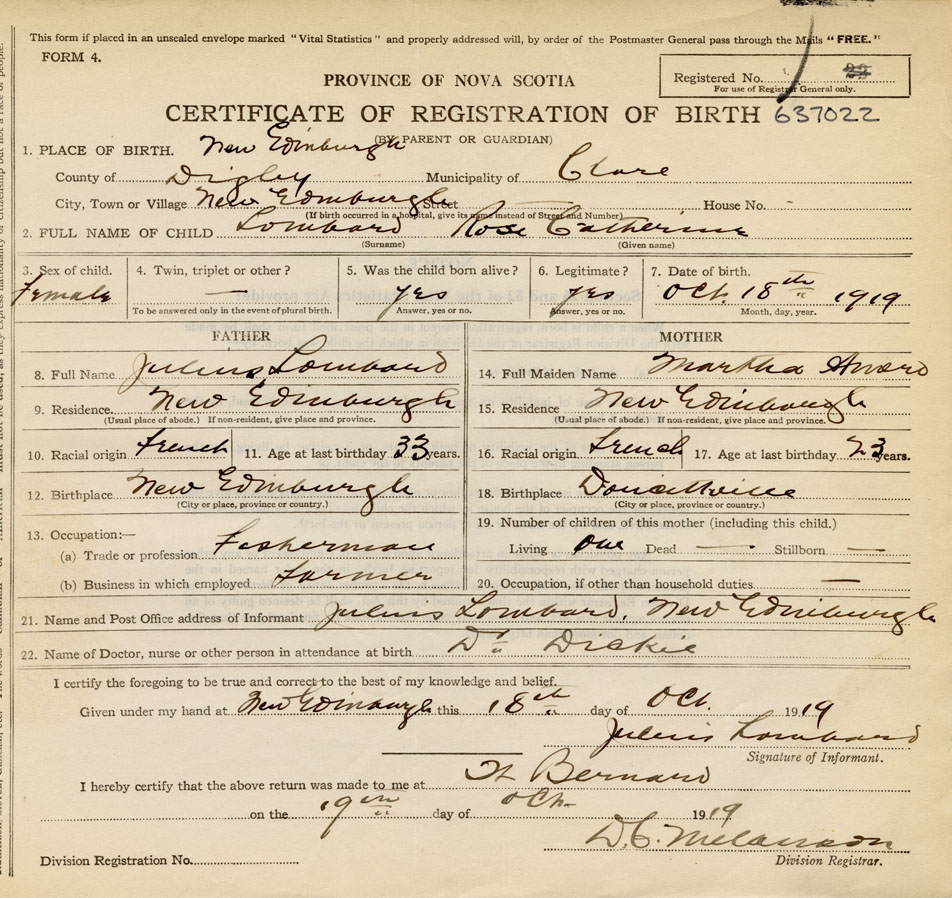 This form if placed in an unsealed envelope marked "Vital Statistics" and properly addressed will, by order of the Postmaster General pass through the Mails "FREE."
FORM 4.
Registered No. 22
For use of Registrar General only.
PROVINCE OF NOVA SCOTIA
CERTIFICATE OF REGISTRATION OF BIRTH 637022
(BY PARENT OR GUARDIAN)
1. PLACE OF BIRTH. New Edinburgh
County of Digby Municipality of Clare
City, Town or Village New Edinburgh Street House No. -
(If birth occurred in a hospital, give its name instead of Street and Number)
2. FULL NAME OF CHILD Lombard Rose Catherine
(Surname) (Given name)
3. Sex of child. 4. Twin, triplet or other? 5. Was the child born alive? 6. Legitimate? 7. Date of birth.
Female — yes yes Oct. 18th 1919
To be answered only in the event of plural birth. Answer, yes or no. Answer, yes or no. Month, day, year.
FATHER MOTHER
8. Full Name Julius Lombard 14. Full Maiden Name Martha
9. Residence. New Edinburgh 15. Residence New Edinbourgh
(Usual place of abode.) If non-resident, give place and province. (Usual place of abode.) If non-resident, give place and province.
10. Racial origin French 11. Age at last birthday 33 years. 16. Racial origin French 17. Age at last birthday 23 years.
12. Birthplace New Edinburgh 18. Birthplace Doucettville
(City or place, province or country.) (City or place, province or country.)
13. Occupation:— 19. Number of children of this mother (including this child.)
(a) Trade or profession Fisherman Living one Dead — Stillborn —
(b) Business in which employed Farmer 20. Occupation, if other than household duties. —
21. Name and Post Office address of Informant Julius Lombard, New Edinburgh
22. Name of Doctor, nurse or other person in attendance at birth Dr Dickie
I certify the foregoing to be true and correct to the best of my knowledge and belief.
Given under my hand at New Edinburgh this 18th day of Oct. 1919
Julius Lombard
Signature of Informant.
I hereby certify that the above return was made to me at St Bernard
on the 19th day of Oct. 1919
D.C. Melanson
Division Registration No. Division Registrar.